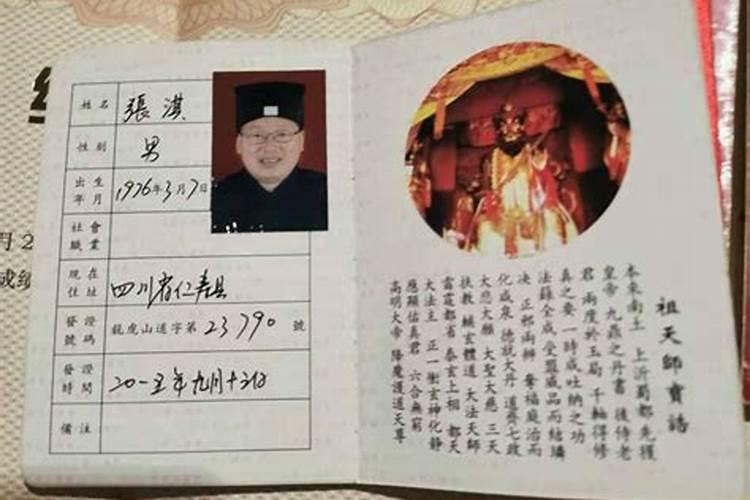 姓名 張淇
性别 男
出生年月 1976年3月7日
社會職業
現在住址 四川省仁寿县
發證號碼 龍虎山道字第23790號
發證時間 二〇一五年九月十二日
備注
祖天師寶誥
本來南土 上沂蜀都 先獲
皇帝 九鼎之丹書 後侍老
君 兩度於玉局 千軸得修
真之要 一時成吐納之功
法籙全成 受盟威品而結璘
決 正邪兩辨 奪福庭治而
化咸泉 德就大丹 道齊七政
大悲大願 大聖大慈 三天
扶教 輔玄體道 大法天師
雷霆都省 泰玄上相 都天
大法主 正一衝玄神化静
應顯佑真君 六合無窮
高明大帝 降魔護道天尊